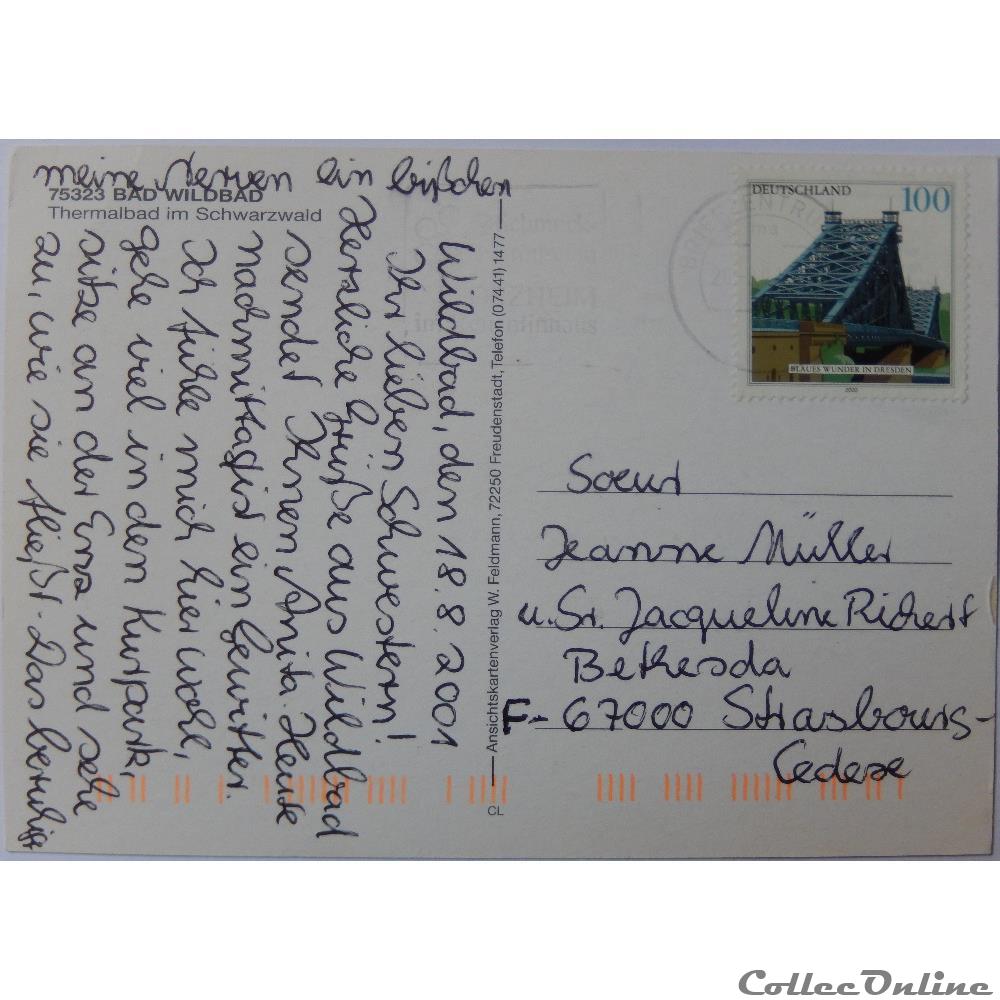 75323 BAD WILDBAD
Thermalbad im Schwarzwald
Wildbad, den 18.8.2001
Ihr lieben Schwestern!
Herzliche Grüße aus Wildbad
sendet Ihnen Anita. Heute
nachmittag ist ein Gewitter.
Ich fühle mich hier wohl,
gehe viel in den Kurpark,
sitze an der Enz und sehe
zu, wie sie fließt. Das beruhigt
meine Nerven ein bißchen
Ansichtskartenverlag W. Feldmann, 72250 Freudenstadt, Telefon (07441) 1477
CL
DEUTSCHLAND 100
BLAUES WUNDER IN DRESDEN
2000
BRIEFZENTRUM
Soeur
Jeanne Müller
u. Sr. Jacqueline Richert
Bethesda
F- 67000 Strasbourg-
Cedex
CollecOnline